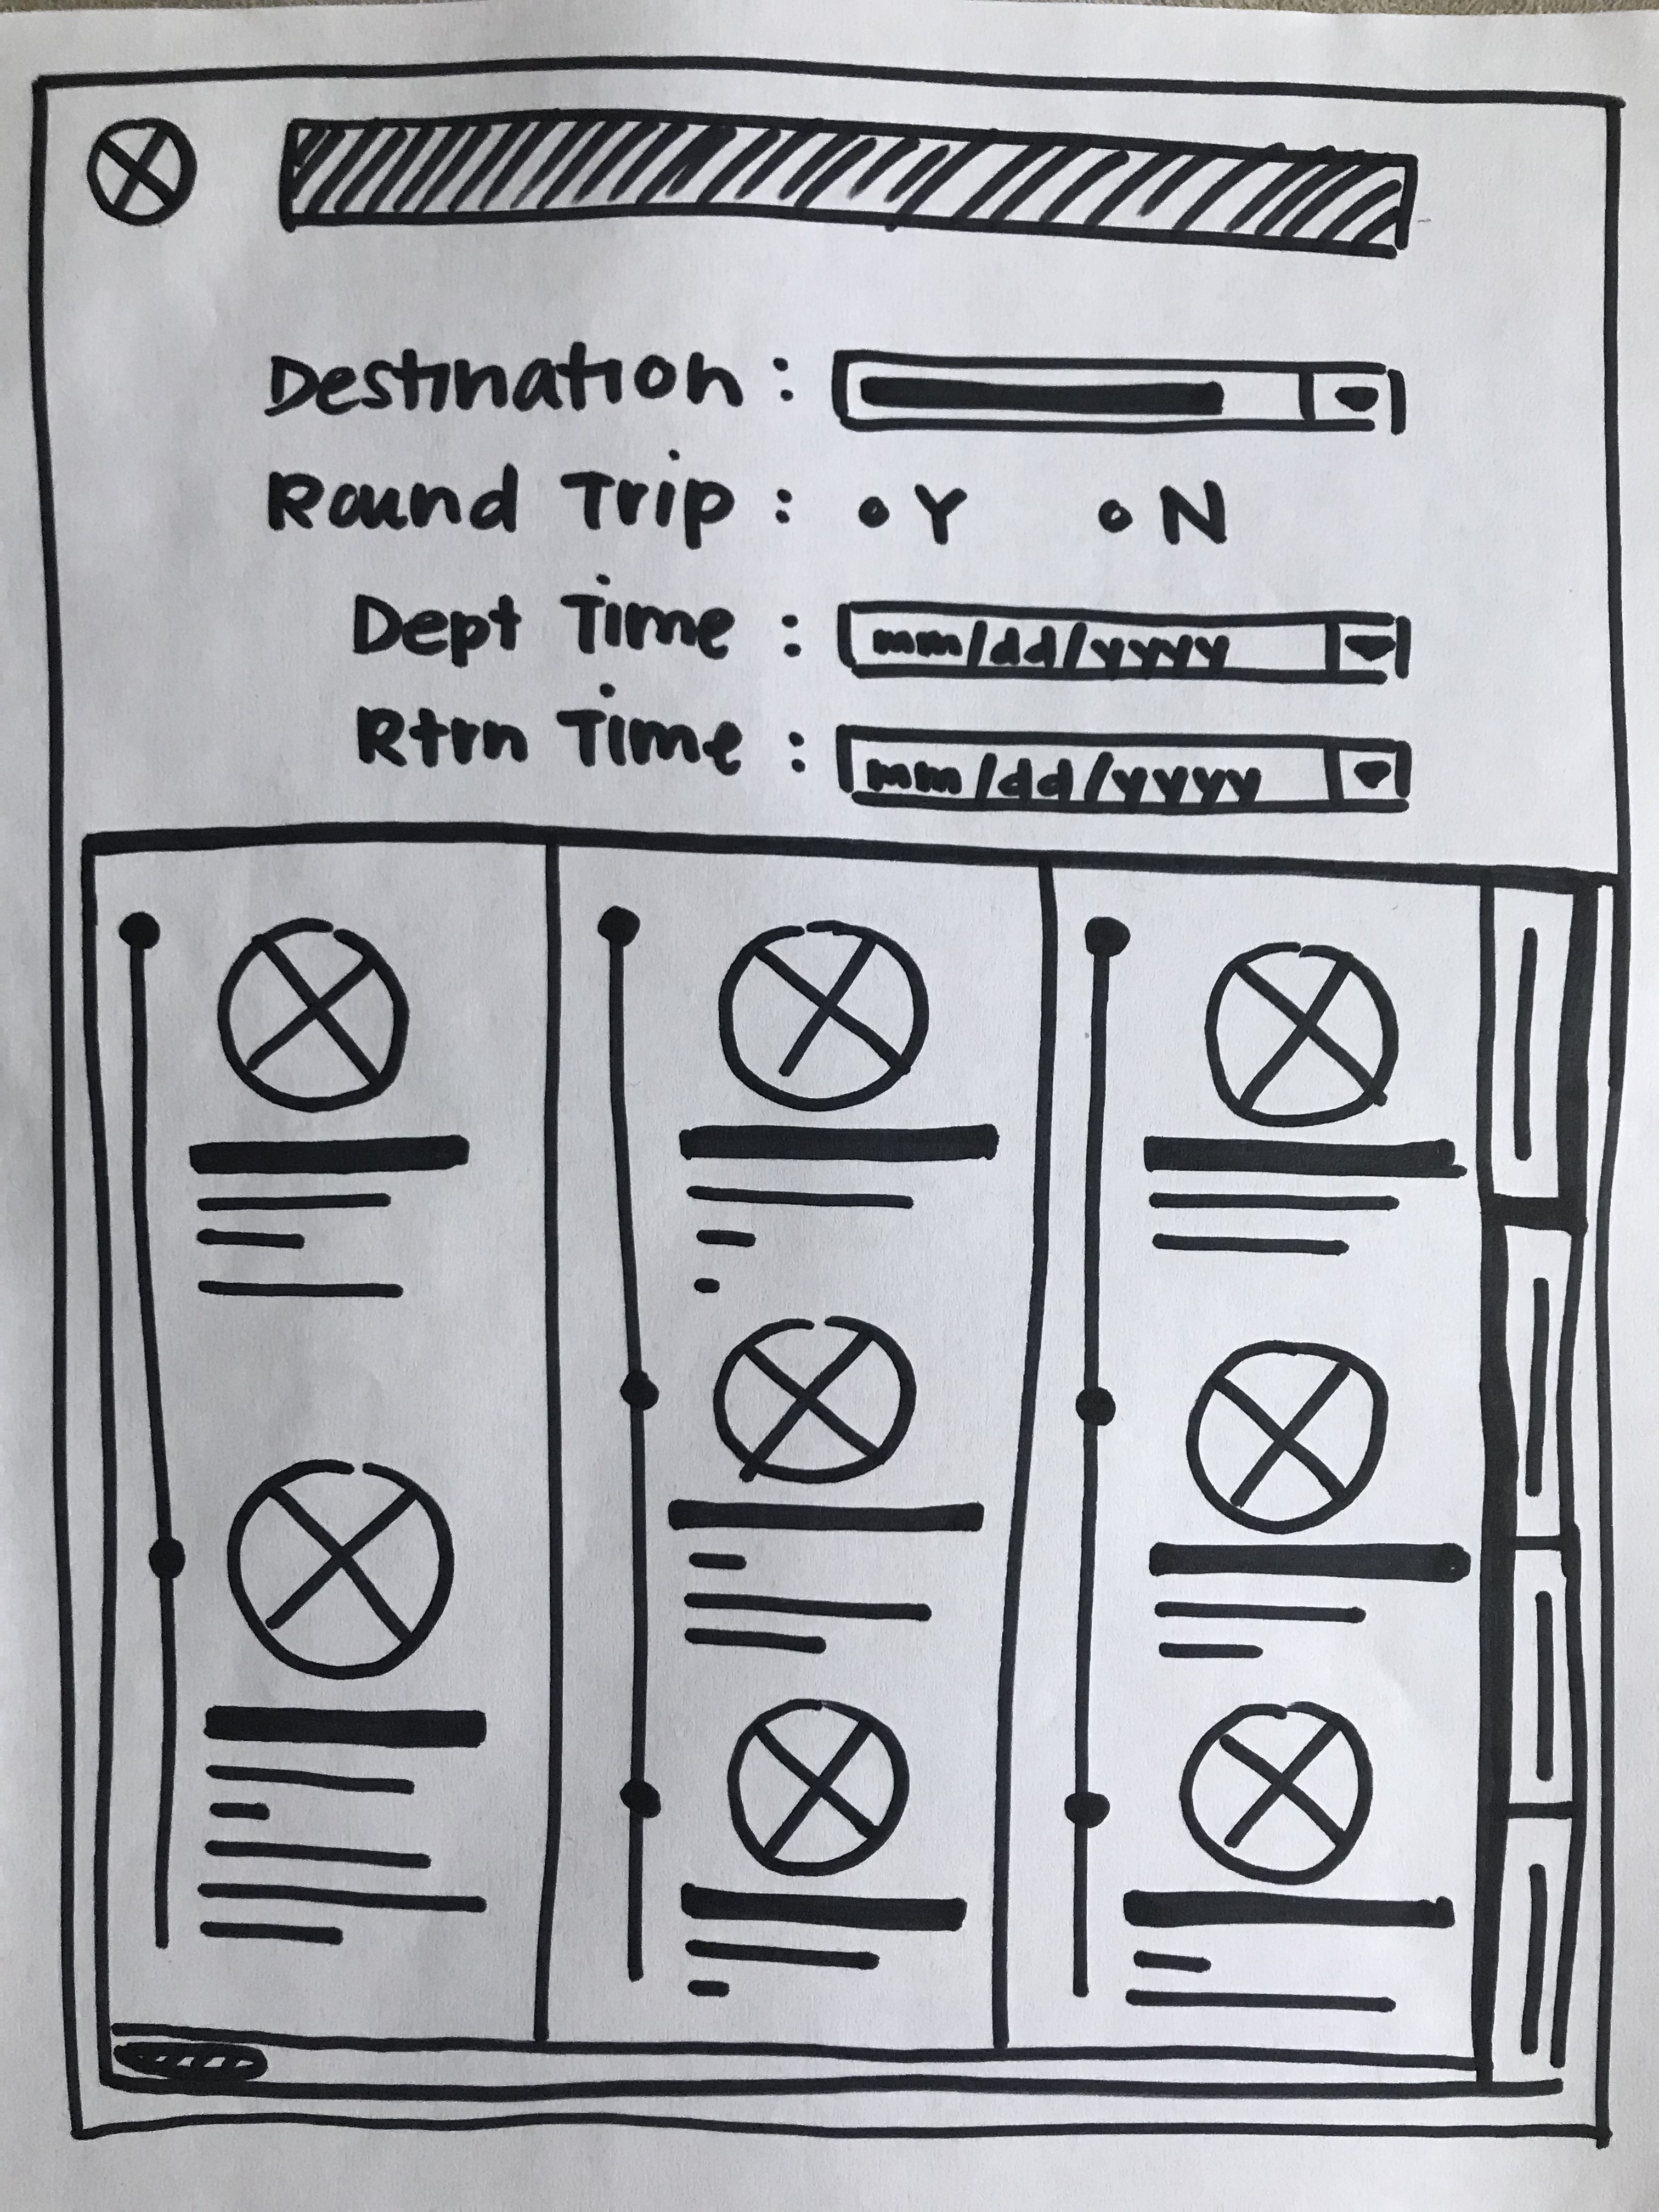 Destination :
Round Trip : Y N
Dept Time : mm/dd/yyyy
Rtrn Time : mm/dd/yyyy